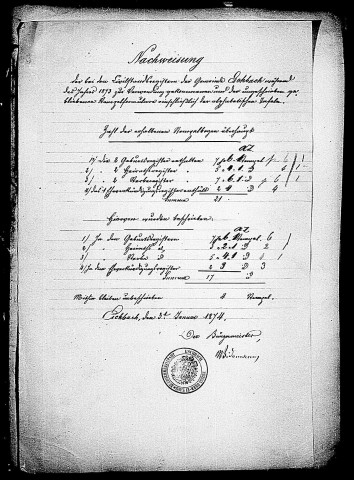 Nachweisung
der bei den Civilstandsregistern der Gemeinde Eschbach während
des Jahres 1873 zur Verwendung gekommenen und der unbeschrieben ge-
bliebenen Stempelformulare einschließlich der alphabetischen Tafeln.
Zahl der erhaltenen Stempelbogen überhaupt
1/ die 2 Geburtsregister enthalten 7
2/ " 2 Heirathsregister " 5
3/ " 2 Sterberegister " 7
4/ das 1 Eheverkündigungsregister enthält 2
Summa 21
Hiervon wurden beschrieben
1/ In den Geburtsregistern 7
2/ " Heiraths d 3
3/ " Sterbe d 5
4/ In der Eheverkündigungsregister 2
Summa 17
Mithin blieben unbeschrieben 4 Stempel.
Eschbach, den 3t Januar 1874.
Der Bürgermeister,